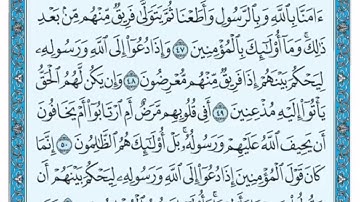 ءَامَنَّا بِٱللَّهِ وَبِٱلرَّسُولِ وَأَطَعْنَا ثُمَّ يَتَوَلَّىٰ فَرِيقٌ مِّنْهُم مِّنۢ بَعْدِ
ذَٰلِكَ ۚ وَمَآ أُو۟لَـٰٓئِكَ بِٱلْمُؤْمِنِينَ ٤٧ وَإِذَا دُعُوٓا۟ إِلَى ٱللَّهِ وَرَسُولِهِۦ
لِيَحْكُمَ بَيْنَهُمْ إِذَا فَرِيقٌ مِّنْهُم مُّعْرِضُونَ ٤٨ وَإِن يَكُن لَّهُمُ ٱلْحَقُّ
يَأْتُوٓا۟ إِلَيْهِ مُذْعِنِينَ ٤٩ أَفِى قُلُوبِهِم مَّرَضٌ أَمِ ٱرْتَابُوٓا۟ أَمْ يَخَافُونَ
أَن يَحِيفَ ٱللَّهُ عَلَيْهِمْ وَرَسُولُهُۥ ۚ بَلْ أُو۟لَـٰٓئِكَ هُمُ ٱلظَّـٰلِمُونَ ٥٠ إِنَّمَا
كَانَ قَوْلَ ٱلْمُؤْمِنِينَ إِذَا دُعُوٓا۟ إِلَى ٱللَّهِ وَرَسُولِهِۦ لِيَحْكُمَ بَيْنَهُمْ أَن